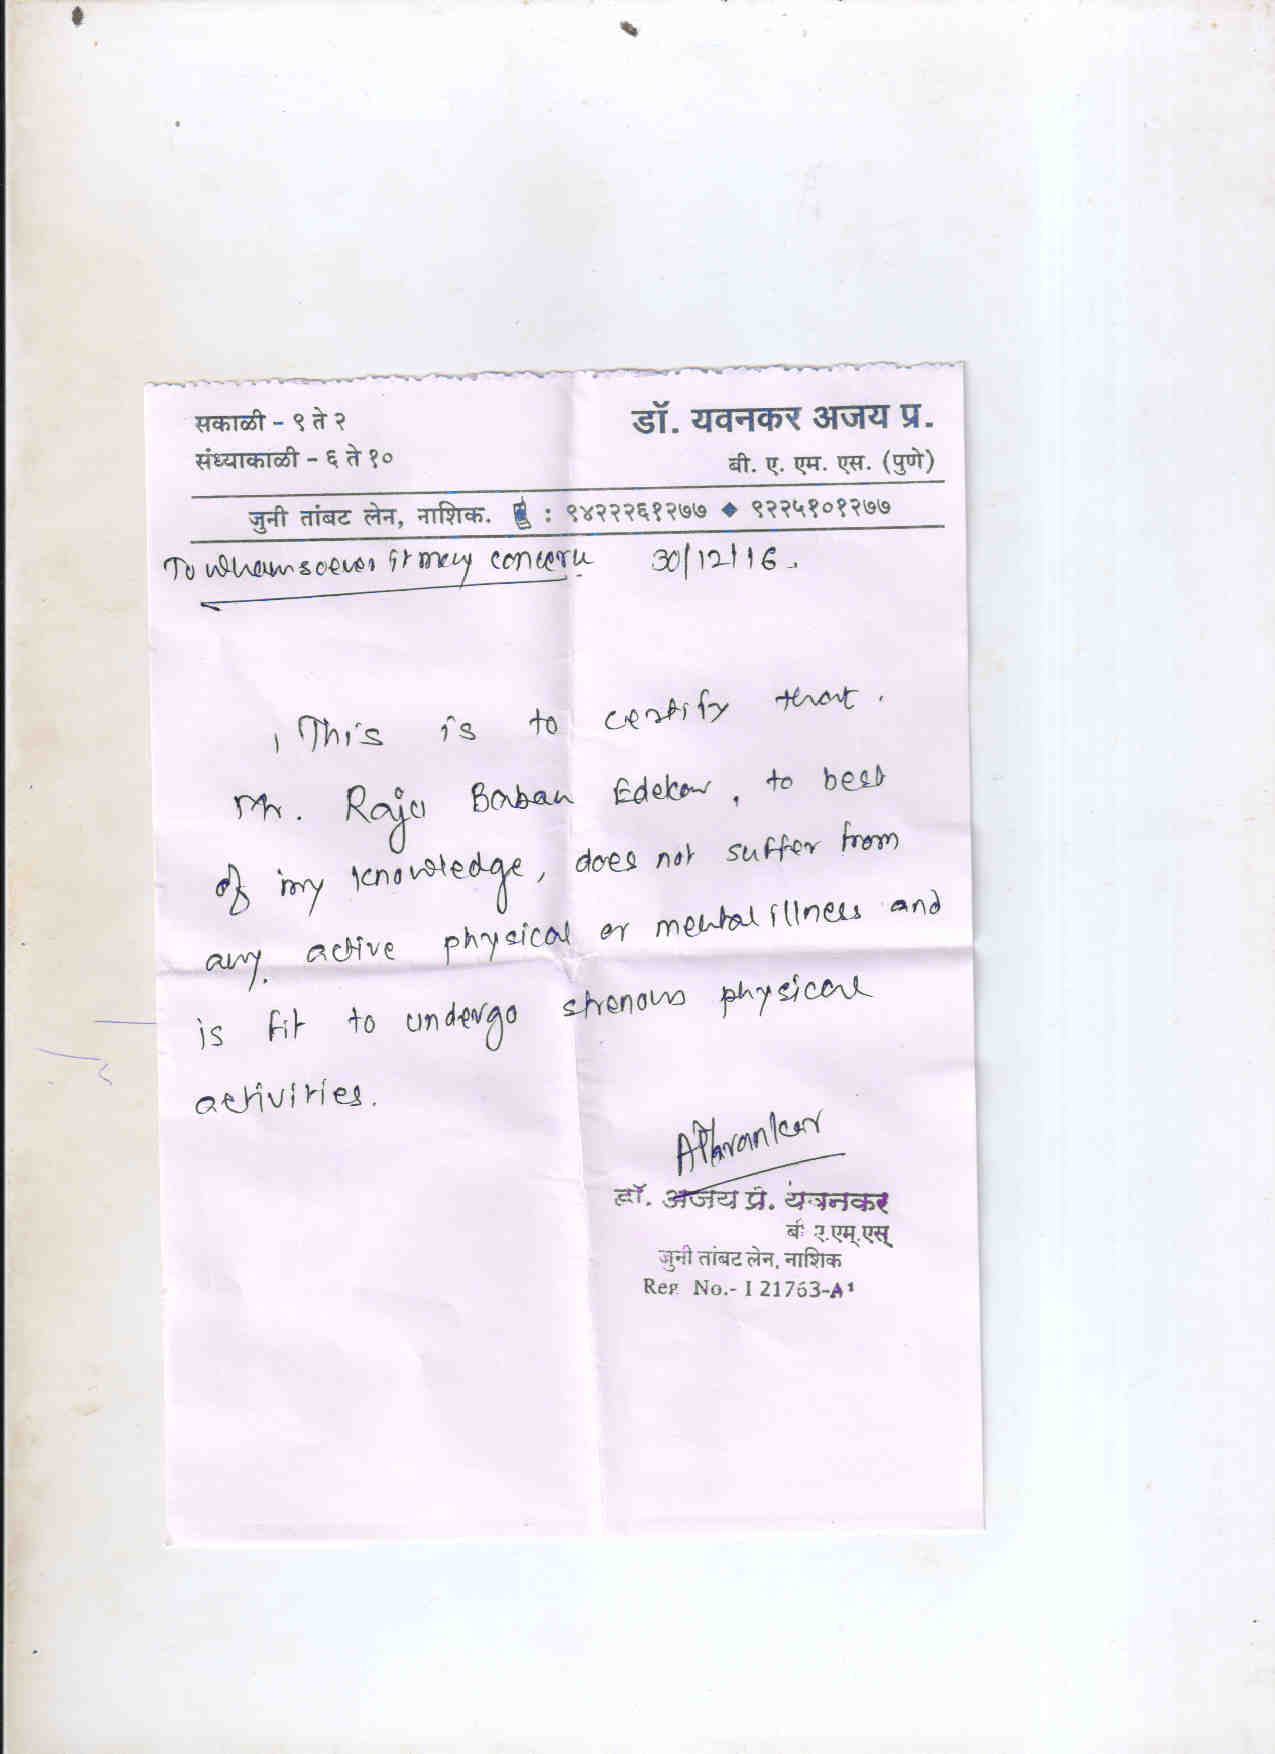 सकाळी - ९ ते २
संध्याकाळी - ६ ते १०
डॉ. यवनकर अजय प्र.
बी. ए. एम. एस. (पुणे)
जुनी तांबट लेन, नाशिक. : ९४२२२६१२७७ ◆ ९२२५१०१२७७
To whomsoever it may concern 30/12/16.
This is to certify that.
Mr. Raju Baban Edekar, to best
of my knowledge, does not suffer from
any. active physical or mental illness and
is fit to undergo strenous physical
activities.
डॉ. अजय प्र. यवनकर
जुनी तांबट लेन, नाशिक
Reg No.- I 21763-A1